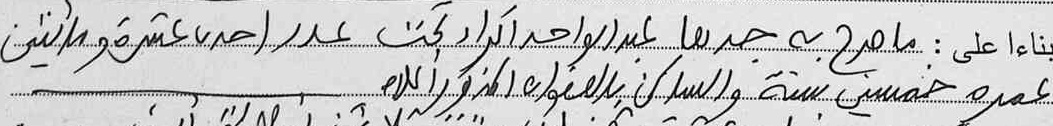 بناءا على : ماصرح به جدها عبدالواحد اكراد تحت عدد احدى عشرة ومائتين
عمره خمسين سنة والساكن بالعنوان المذكور أعلاه